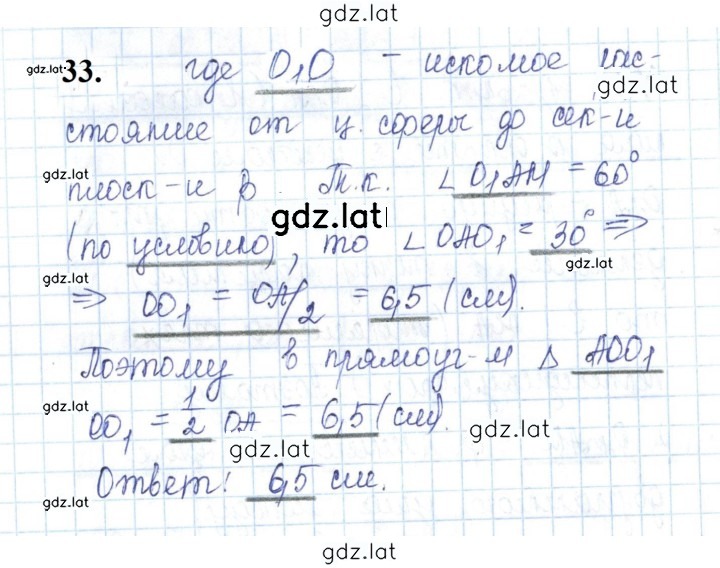 gdz.lat
gdz.lat 33. где O₁O – искомое рас-
стояние от ц. сферы до сек-й
gdz.lat
плоск-и β. Т.к. ∠O₁AM = 60°
gdz.lat
(по условию), то ∠OAO₁ = 30° ⇒
gdz.lat gdz.lat
⇒ OO₁ = OA/2 = 6,5 (см).
Поэтому в прямоуг-м Δ AOO₁
gdz.lat
OO₁ = 1/2 OA = 6,5 (см).
gdz.lat gdz.lat
Ответ: 6,5 см.
gdz.lat
gdz.lat